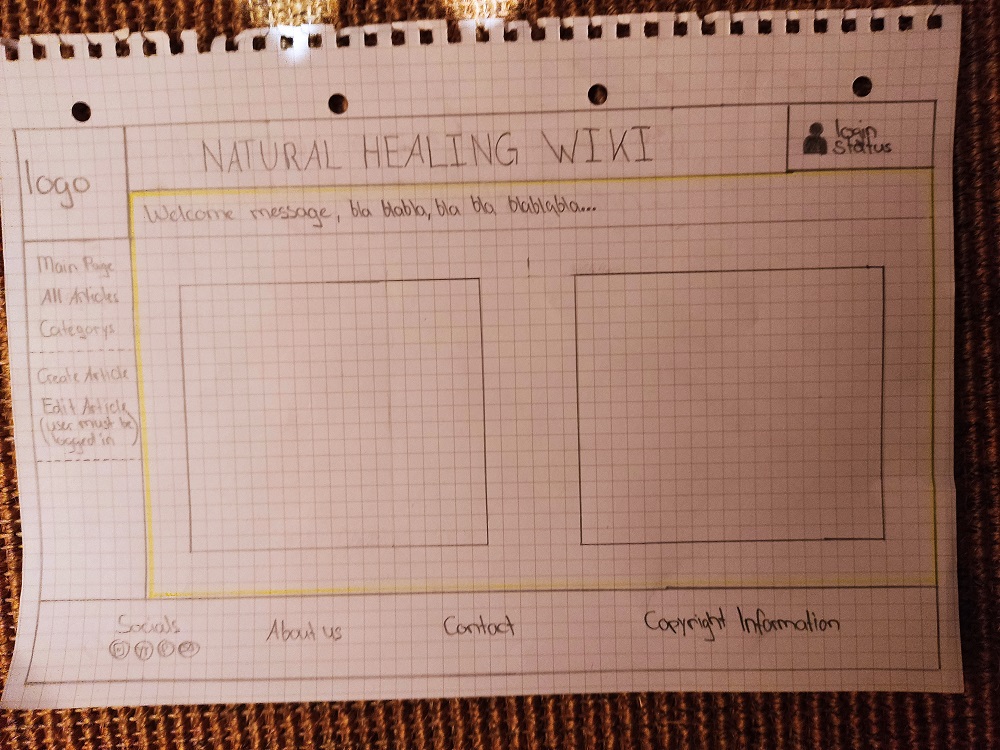 logo
NATURAL HEALING WIKI
login
status
Welcome message, bla blabla, bla bla blablabla...
Main Page
All Articles
Categorys
Create Article
Edit Article
(user must be
logged in)
Socials
About us
Contact
Copyright Information